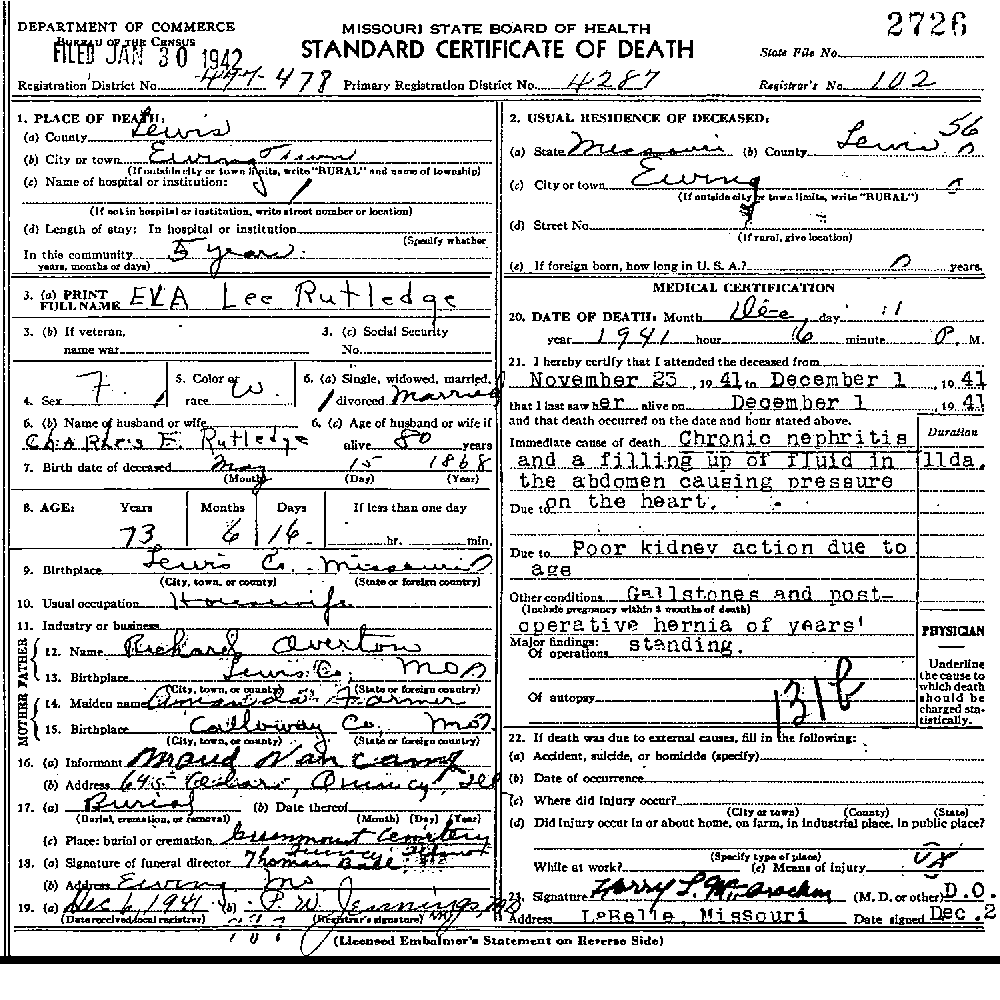 DEPARTMENT OF COMMERCE
BUREAU OF THE CENSUS
FILED JAN 30 1942
MISSOURI STATE BOARD OF HEALTH
STANDARD CERTIFICATE OF DEATH
2726
State File No.
Registration District No. 478
Primary Registration District No. 4287
Registrar's No. 102
1. PLACE OF DEATH:
(a) County Lewis
(b) City or town Ewing
(If outside city or town limits, write "RURAL" and name of township)
(c) Name of hospital or institution:
(If not in hospital or institution, write street number or location)
(d) Length of stay: In hospital or institution
(Specify whether
In this community 5 years
years, months or days)
3. (a) PRINT FULL NAME EVA Lee Rutledge
3. (b) If veteran, name war
3. (c) Social Security No.
4. Sex F
5. Color or race W
6. (a) Single, widowed, married, divorced Married
6. (b) Name of husband or wife Charles E. Rutledge
6. (c) Age of husband or wife if alive 80 years
7. Birth date of deceased May 15 1868
(Month) (Day) (Year)
8. AGE: Years Months Days If less than one day
73 6 16 hr. min.
9. Birthplace Lewis Co. Missouri
(City, town, or county) (State or foreign country)
10. Usual occupation Housewife
11. Industry or business
FATHER
12. Name Richard Overton
13. Birthplace Lewis Co. Mo
(City, town, or county) (State or foreign country)
MOTHER
14. Maiden name Amanda Farmer
15. Birthplace Calloway Co. Mo
(City, town, or county) (State or foreign country)
16. (a) Informant Maud Van Camp
(b) Address 645 Quincy, Ill
17. (a) Burial (b) Date thereof
(Burial, cremation, or removal) (Month) (Day) (Year)
(c) Place: burial or cremation Cemetery
18. (a) Signature of funeral director Thomas Ball
(b) Address Ewing Mo
19. (a) Dec 6, 1941 (b) P. W. Jennings, MD
(Date received local registrar) (Registrar's signature)
2. USUAL RESIDENCE OF DECEASED: 56
(a) State Missouri (b) County Lewis
(c) City or town Ewing
(If outside city or town limits, write "RURAL")
(d) Street No.
(If rural, give location)
(e) If foreign born, how long in U. S. A.? 0 years.
MEDICAL CERTIFICATION
20. DATE OF DEATH: Month Dec day 1
year 1941 hour 6 minute P. M.
21. I hereby certify that I attended the deceased from
November 23, 1941 to December 1, 1941
that I last saw her alive on December 1, 1941
and that death occurred on the date and hour stated above.
Duration
Immediate cause of death Chronic nephritis
and a filling up of fluid in 11da.
the abdomen causing pressure
Due to on the heart.
Due to Poor kidney action due to
age
Other conditions Gallstones and post-
(Include pregnancy within 3 months of death)
operative hernia of years'
Major findings: standing.
Of operations
Of autopsy 131b
PHYSICIAN
Underline the cause to which death should be charged statistically.
22. If death was due to external causes, fill in the following:
(a) Accident, suicide, or homicide (specify)
(b) Date of occurrence
(c) Where did injury occur?
(City or town) (County) (State)
(d) Did injury occur in or about home, on farm, in industrial place, in public place?
(Specify type of place)
While at work? (e) Means of injury
23. Signature Harry L. (M. D. or other) D.O.
Address LaBelle, Missouri Date signed Dec. 2
(Licensed Embalmer's Statement on Reverse Side)